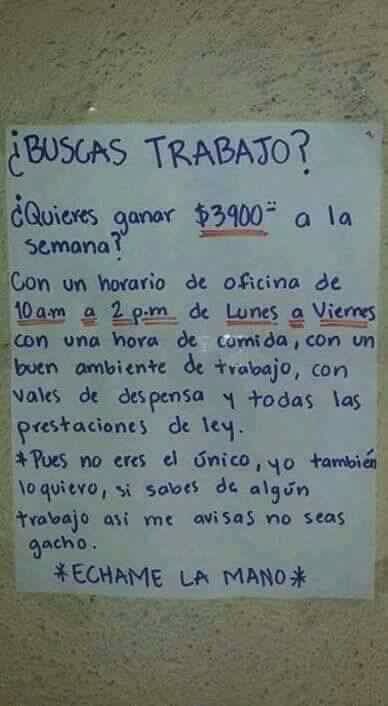 ¿BUSCAS TRABAJO?
¿Quieres ganar $3900= a la
semana?
Con un horario de oficina de
10 a.m a 2 p.m de Lunes a Viernes
con una hora de comida, con un
buen ambiente de trabajo, con
vales de despensa y todas las
prestaciones de ley.
*Pues no eres el único, yo también
lo quiero, si sabes de algún
trabajo asi me avisas no seas
gacho.
*ECHAME LA MANO*